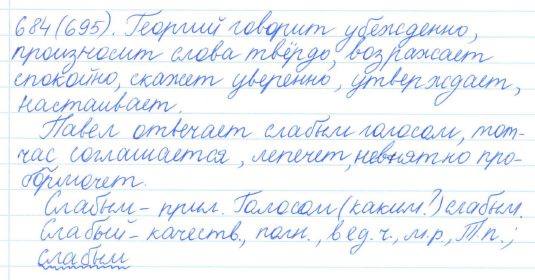 684(695). Георгий говорит убежденно,
произносит слова твёрдо, возражает
спокойно, скажет уверенно, утверждает,
настаивает.
Павел отвечает слабым голосом, тот-
час соглашается, лепечет, невнятно про-
бормочет.
Слабым – прил. Голосом (каким?) слабым.
Слабый – качеств., полн., в ед.ч., м.р., Т.п.;
слабым